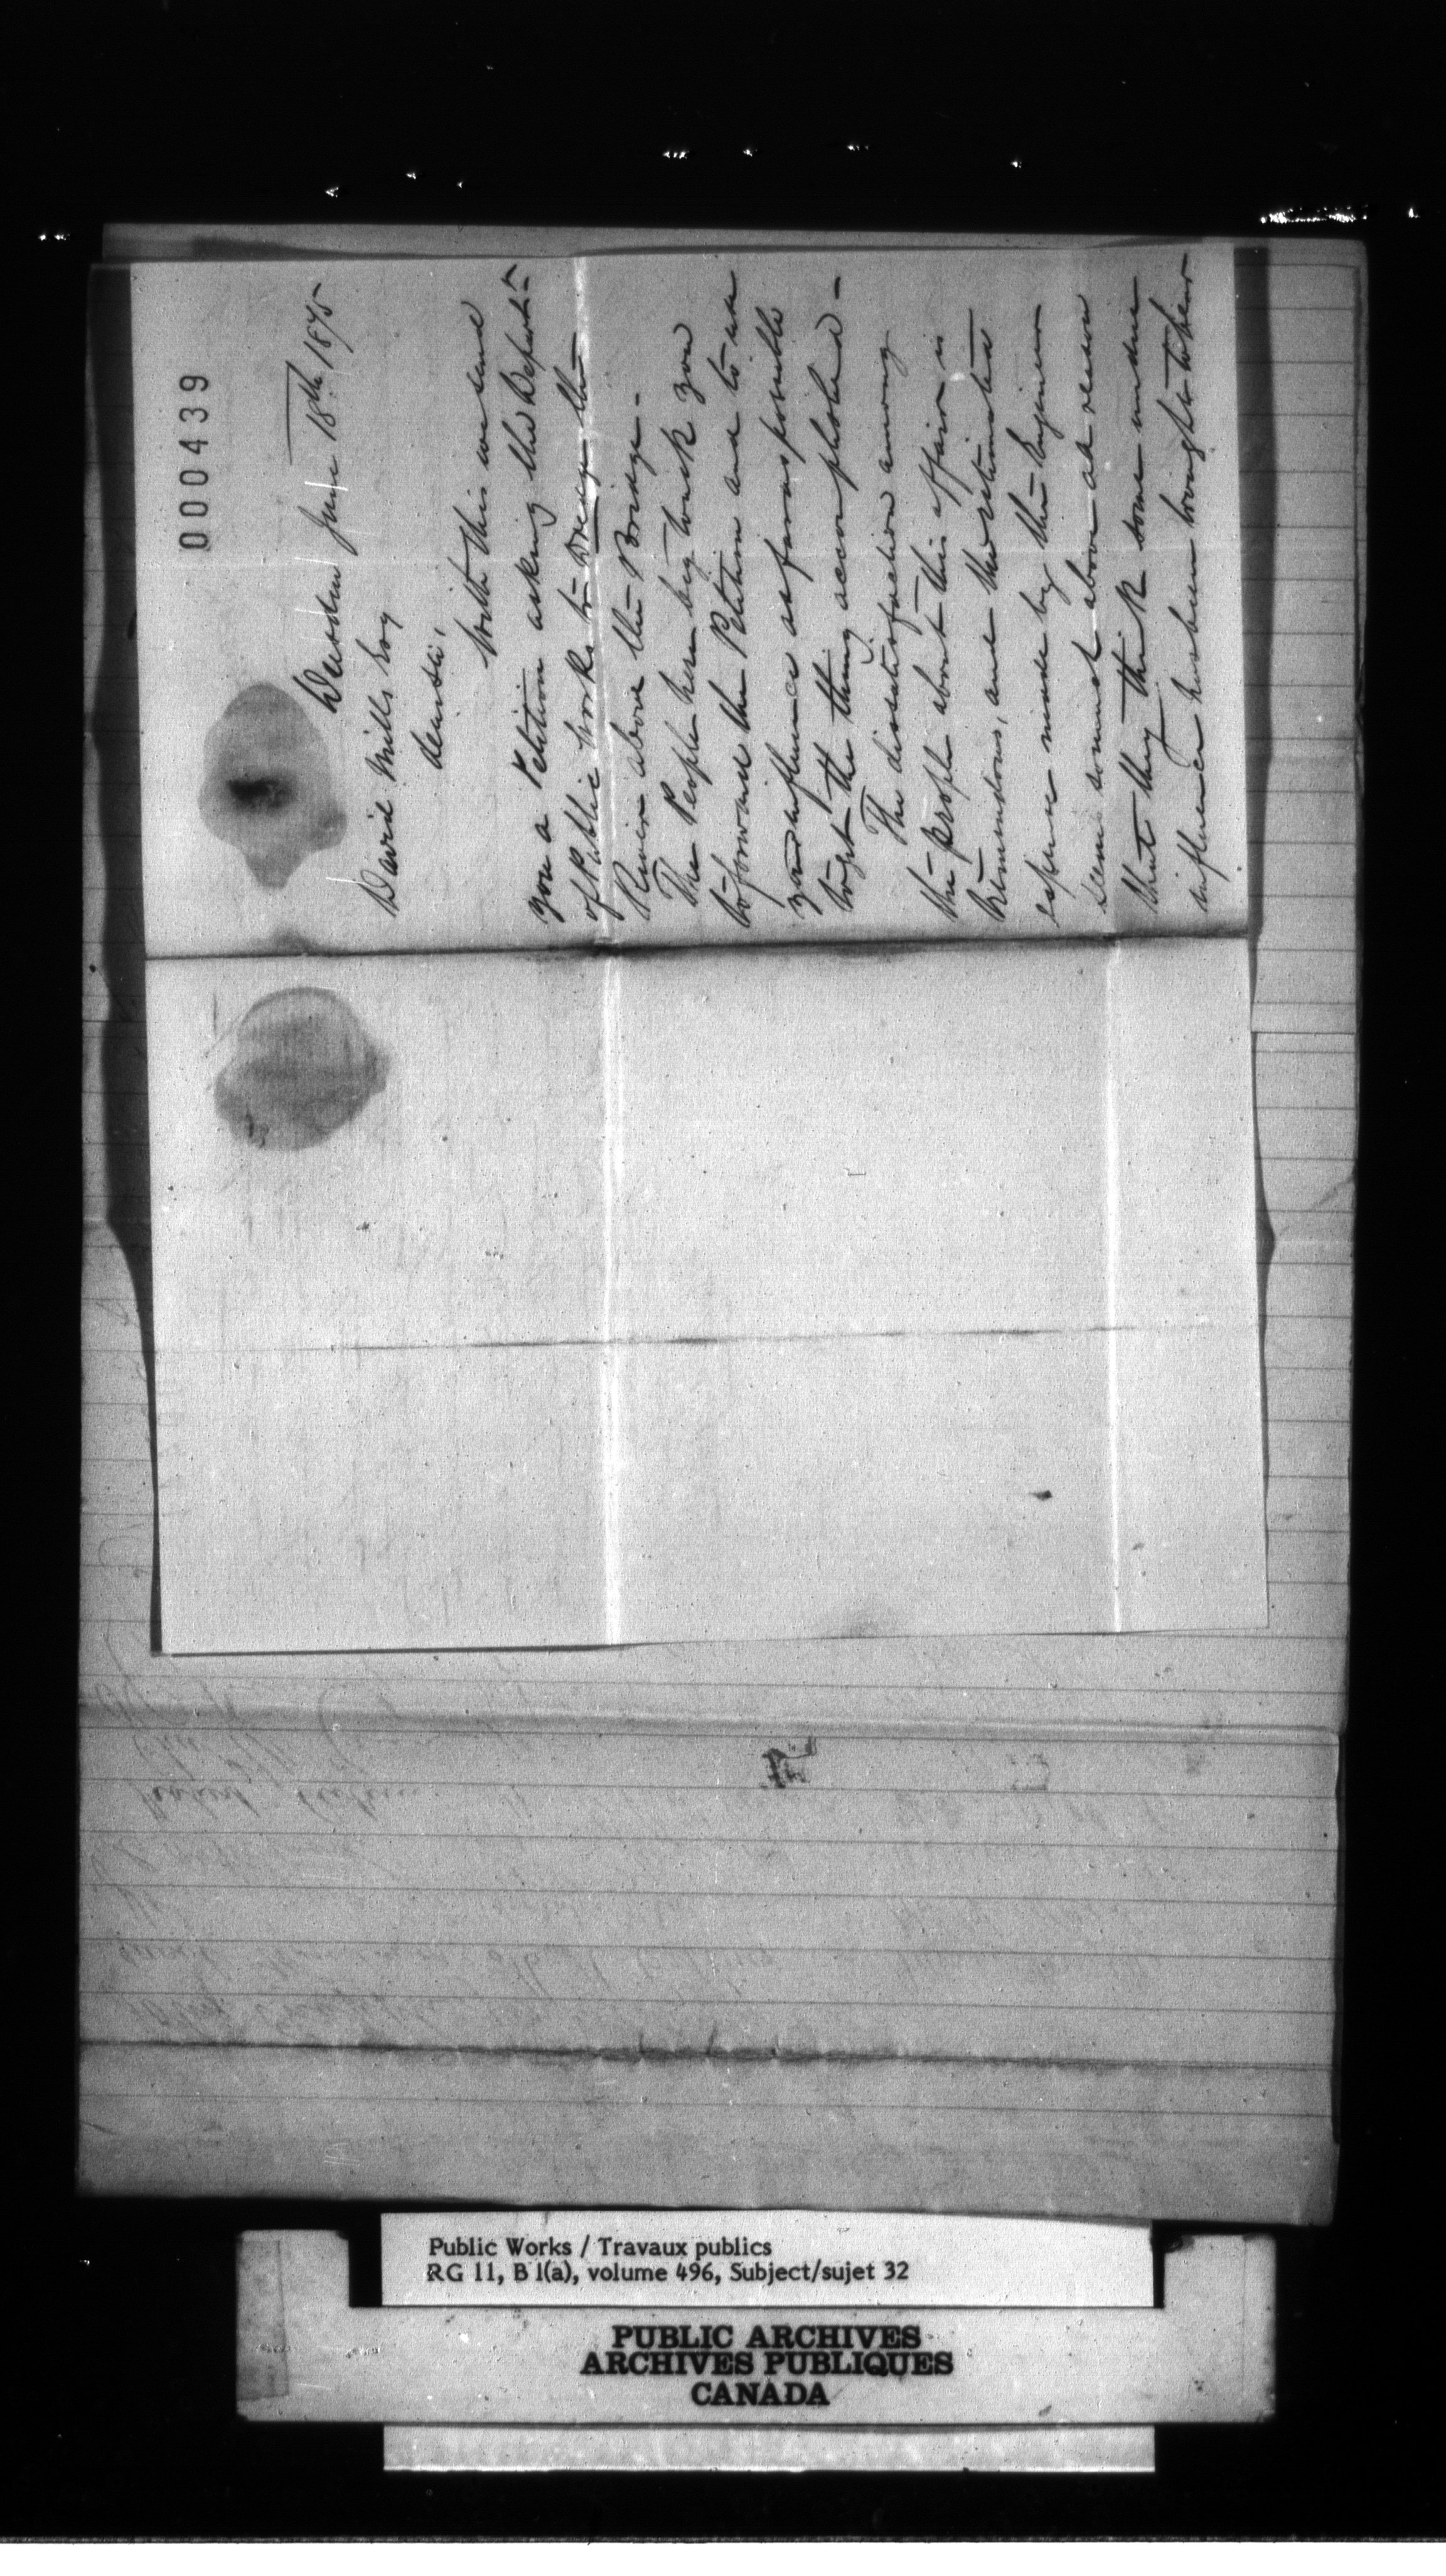 000439
Dresden June 18th 1875
David Mills Esq
Dear Sir,
With this we send
you a Petition asking the Departmt
of Public Works to Dredge the
River above the Bridge -
The People here beg to ask you
to forward the Petition and to use
your influence as far as possible
to get the thing accomplished -
The dissatisfaction among
the people about this affair is
tremendous, and the estimated
expense made by the Engineer
seems so much above all reason
that they think some undue
influence has been brought to bear
Public Works / Travaux publics
RG 11, B 1(a), volume 496, Subject/sujet 32
PUBLIC ARCHIVES
ARCHIVES PUBLIQUES
CANADA